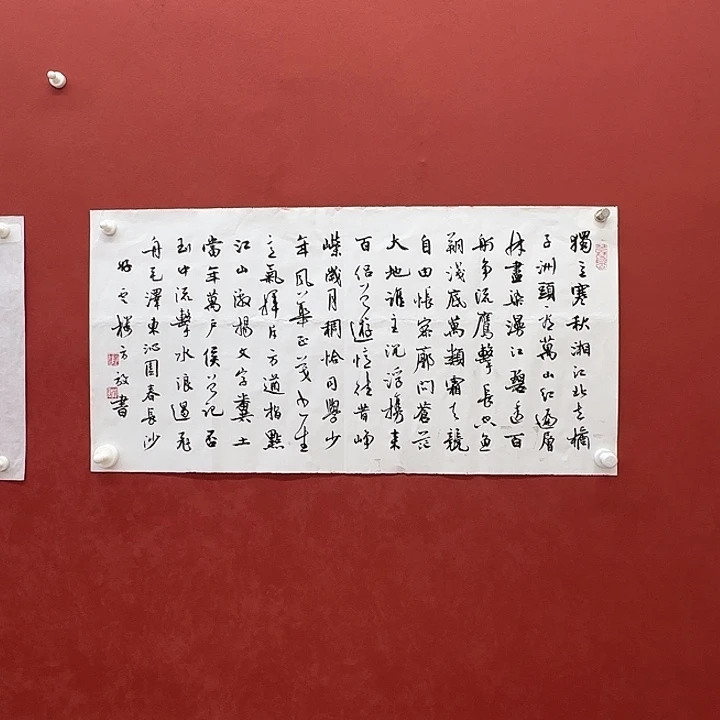 獨立寒秋湘江北去橘
子洲頭看萬山红遍層
林盡染漫江碧透百
舸争流鷹擊長空魚
翔淺底萬類霜天競
自由悵寥廓問蒼茫
大地誰主沉浮攜來
百侣曾遊憶往昔崢
嶸歲月稠恰同學少
年风華正茂书生
意氣揮斥方遒指點
江山激揚文字糞土
當年萬户侯曾記否
到中流擊水浪遏飛
舟毛澤東沁園春長沙
書